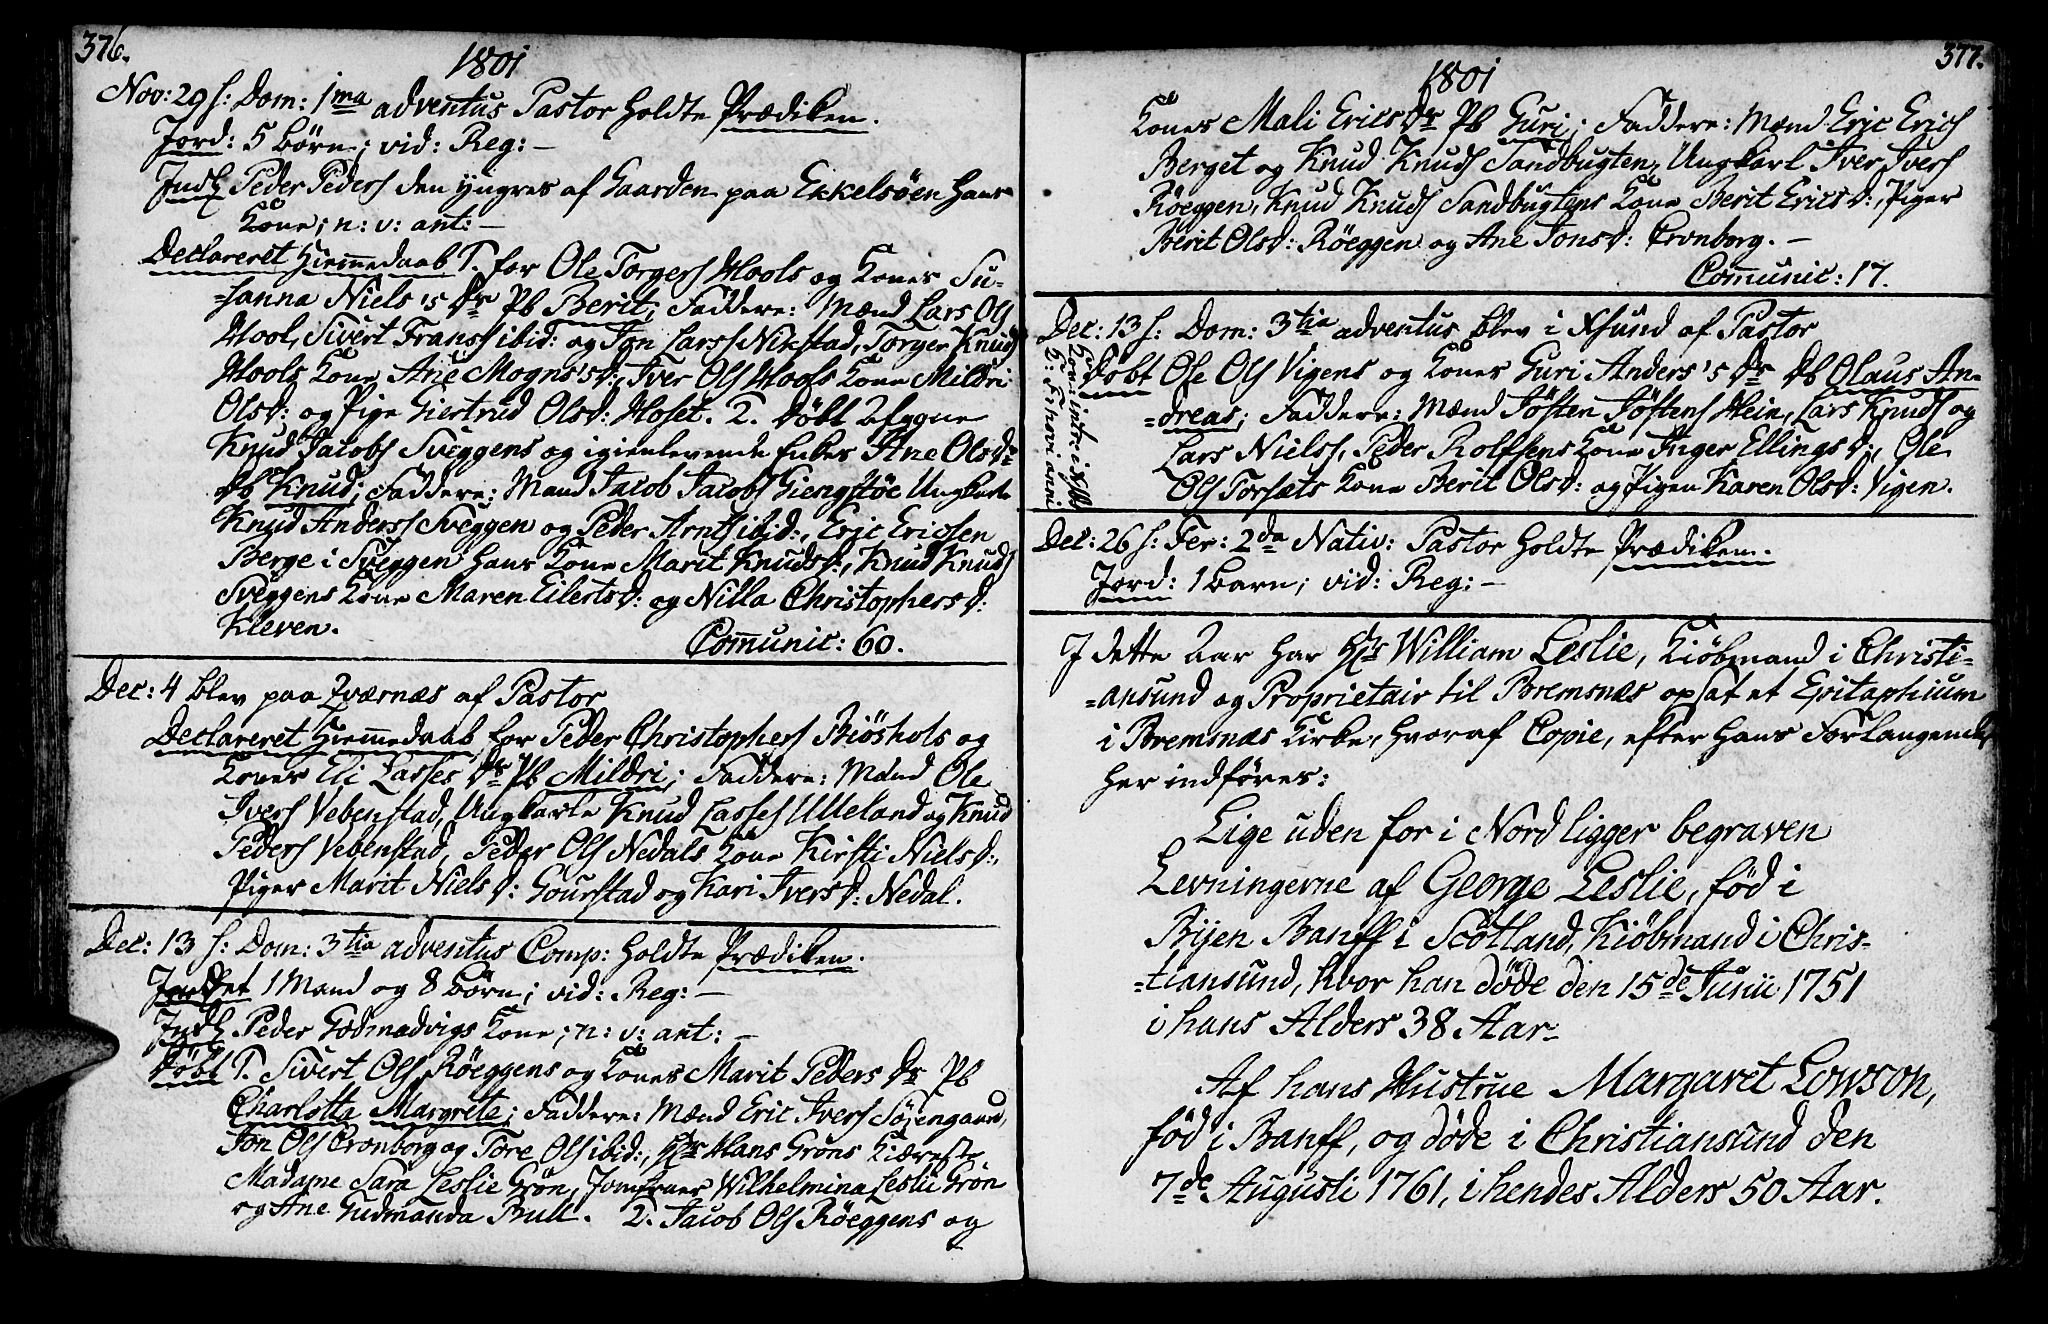 376.
1801
Nov: 29 s: Dom: 1ma adventus Pastor holdte Prædiken.
Jord: 5 Børn; vid: Reg: -
Indl Peder Peders den yngres af Gaarden paa Ekkelsöen hans
Kone; n: v: ant: -
Declareret Hiemmedaab 1. for Ole Torgers Hools og Kones Su-
=sanna Niels's Dr Pb Berit; Faddere: Mænd Lars Ols
Hool, Sivert Franss ibid: og Jon Larss Nikstad, Torger Knuds
Hools Kone Ane Mogns's D:, Iver Ols Hools Kone Mildri
Olsd: og Pige Giertrud Olsd: Hoset. 2. Döbt afgangne
Knud Jacobs Sveggens og igienlevende Enkes Ane Olsdr
Db Knud; Faddere: Mand Jacob Jacobs Giengstöe Ungkarle
Knud Anderss Sveggen og Peder Arnts ibid:, Eric Ericsen
Berge i Sveggen hans Kone Marit Knudsd:, Knud Knuds
Sveggens Kone Maren Eilertsd: og Nilla Christophersd:
Kleven.
Comunic: 60.
Dec: 4 blev paa Qværnæs af Pastor
Declareret Hiemmedaab for Peder Christophers Biöshols og
Kones Eli Lasses Dr Pb Mildri; Faddere: Mænd Ole
Ivers Vebenstad, Ungkarle Knud Lasses Ulleland og Knud
Peders Vebenstad, Peder Ols Nedals Kone Kirsti Nielsd:,
Piger Marit Nielsd: Gourstad og Kari Iversd: Nedal.
Dec: 13 s: Dom: 3tia adventus Comp: holdte Prædiken.
Jordet 1 Mand og 8 Börn; vid: Reg: -
Indl Peder Godmadvigs Kone; n: v: ant: -
Döbt 1. Sivert Ols Röeggens og Kones Marit Peders Dr Pb
Charlotta Margrete; Faddere: Mænd Eric Ivers Söjengaard,
Jon Ols Cronborg og Tore Ols ibid:, Hr Hans Gröns Kiæreste
Madame Sara Leslie Grön, Jomfruer Wilhelmina Leslie Grön
og Ane Gudmanda Bull. 2. Jacob Ols Röeggens og
377.
1801
Kones Mali Erics Dr Pb Guri; Faddere: Mænd Eric Erics
Berget og Knud Knuds Sandbugten, Ungkarl Iver Ivers
Röeggen, Knud Knuds Sandbugtens Kone Berit Ericsd:, Piger
Berit Olsd: Röeggen og Ane Jonsd: Cronborg. -
Comunic: 17.
Dec: 13 s: Dom: 3tia adventus blev i Xsund af Pastor
Döbt Ole Ols Vigens og Kones Guri Anders's Dr Db Olaus An-
=dreas; Faddere: Mænd Jösten Jöstens Hein, Lars Knuds og
Lars Nielss, Peder Rolfsens Kone Inger Ellingsd:, Ole
Ols Torsæts Kone Berit Olsd: og Pigen Karen Olsd: Vigen.
Dec: 26 s: Fer: 2da Nativ: Pastor holdte Prædiken.
Jord: 1 Barn; vid: Reg: -
I dette Aar har Hr William Leslie, Kiöbmand i Christi-
=ansund og Proprietair til Bremsnæs opsat et Epitaphium
i Bremsnæs Kirke, hvoraf Copie, efter hans Forlangende
her indföres:
Lige uden for i Nord ligger begraven
Levningerne af George Leslie, föd i
Byen Banff i Scotland, Kiöbmand i Chris-
=tiansund, hvor han döde den 15de Junii 1751
i hans Alders 38 Aar-
Af hans Hustrue Margaret Lowson,
föd i Banff, og döde i Christiansund den
7de Augusti 1761, i hendes Alders 50 Aar.